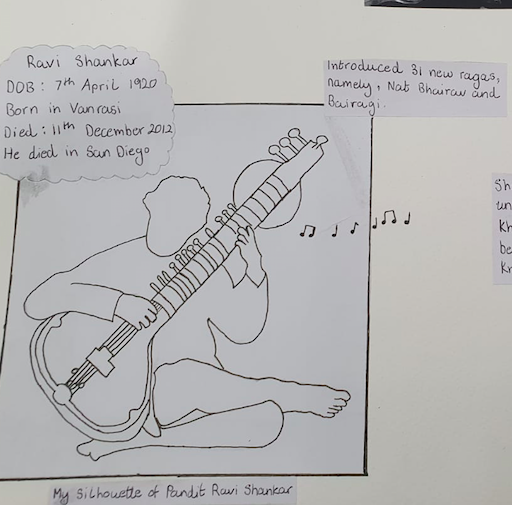 Ravi Shankar
DOB : 7th April 1920
Born in Vanrasi
Died : 11th December 2012
He died in San Diego
Introduced 31 new ragas,
namely, Nat Bhairav and
Bairagi.
My Silhouette of Pandit Ravi Shankar